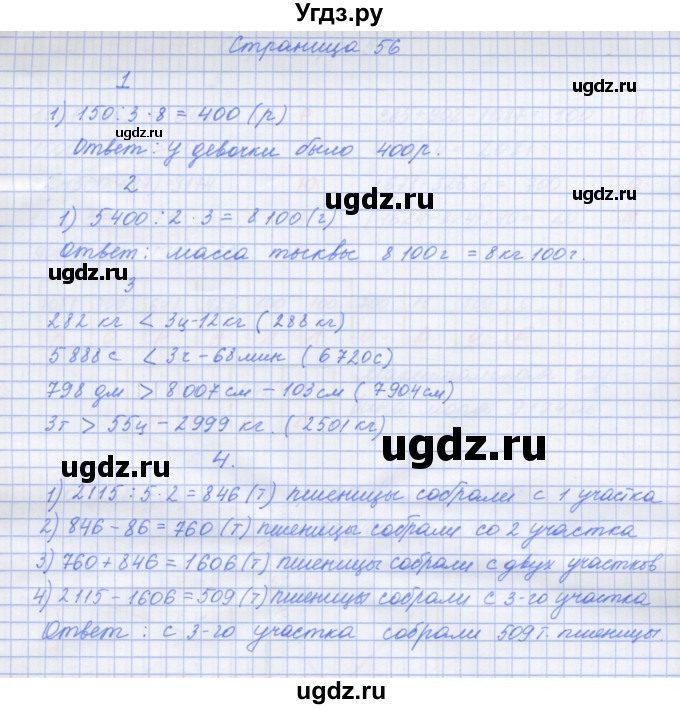 Угдз.ру
Страница 56
ugdz.ru
1
1) 150:3·8 = 400 (р)
ugdz.ru
ugdz.ru
Ответ: у девочки было 400р.
2
ugdz.ru
1) 5400:2·3 = 8100(г)
Ответ: масса тыквы 8100г = 8кг 100г.
ugdz.ru
ugdz.ru
3
282 кг < 3ц-12кг (288кг)
5888с < 3ч-68мин (6720с)
798 дм > 8007см - 103см (7904см)
ugdz.ru
3т > 55ц - 2999 кг. (2501кг)
ugdz.ru
4.
ugdz.ru
1) 2115:5·2=846(т) пшеницы собрали с 1 участка
2) 846-86=760(т) пшеницы собрали со 2 участка
3) 760+846=1606(т) пшеницы собрали с двух участков
4) 2115-1606=509(т) пшеницы собрали с 3-го участка
Ответ: с 3-го участка собрали 509т. пшеницы.
ugdz.ru
ugdz.ru
ugdz.ru